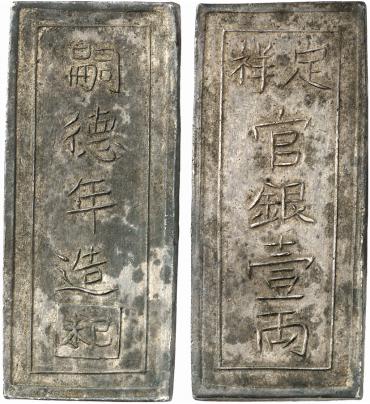 嗣德年造
定祥
官銀壹両